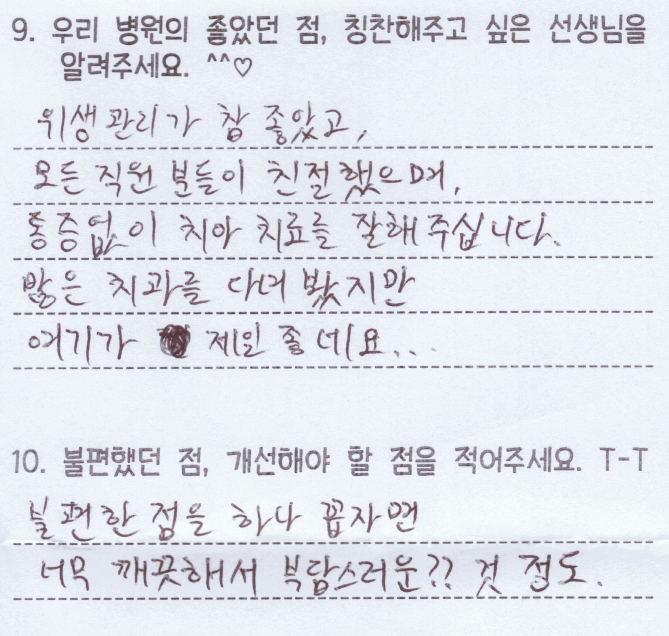 9. 우리 병원의 좋았던 점, 칭찬해주고 싶은 선생님을
알려주세요. ^^♡
위생관리가 참 좋았고,
모든 직원 분들이 친절했으며,
통증없이 치아 치료를 잘해주십니다.
많은 치과를 다녀 봤지만
여기가 제일 좋네요...
10. 불편했던 점, 개선해야 할 점을 적어주세요. T-T
불편한 점을 하나 꼽자면
너무 깨끗해서 부담스러운?? 것 정도.